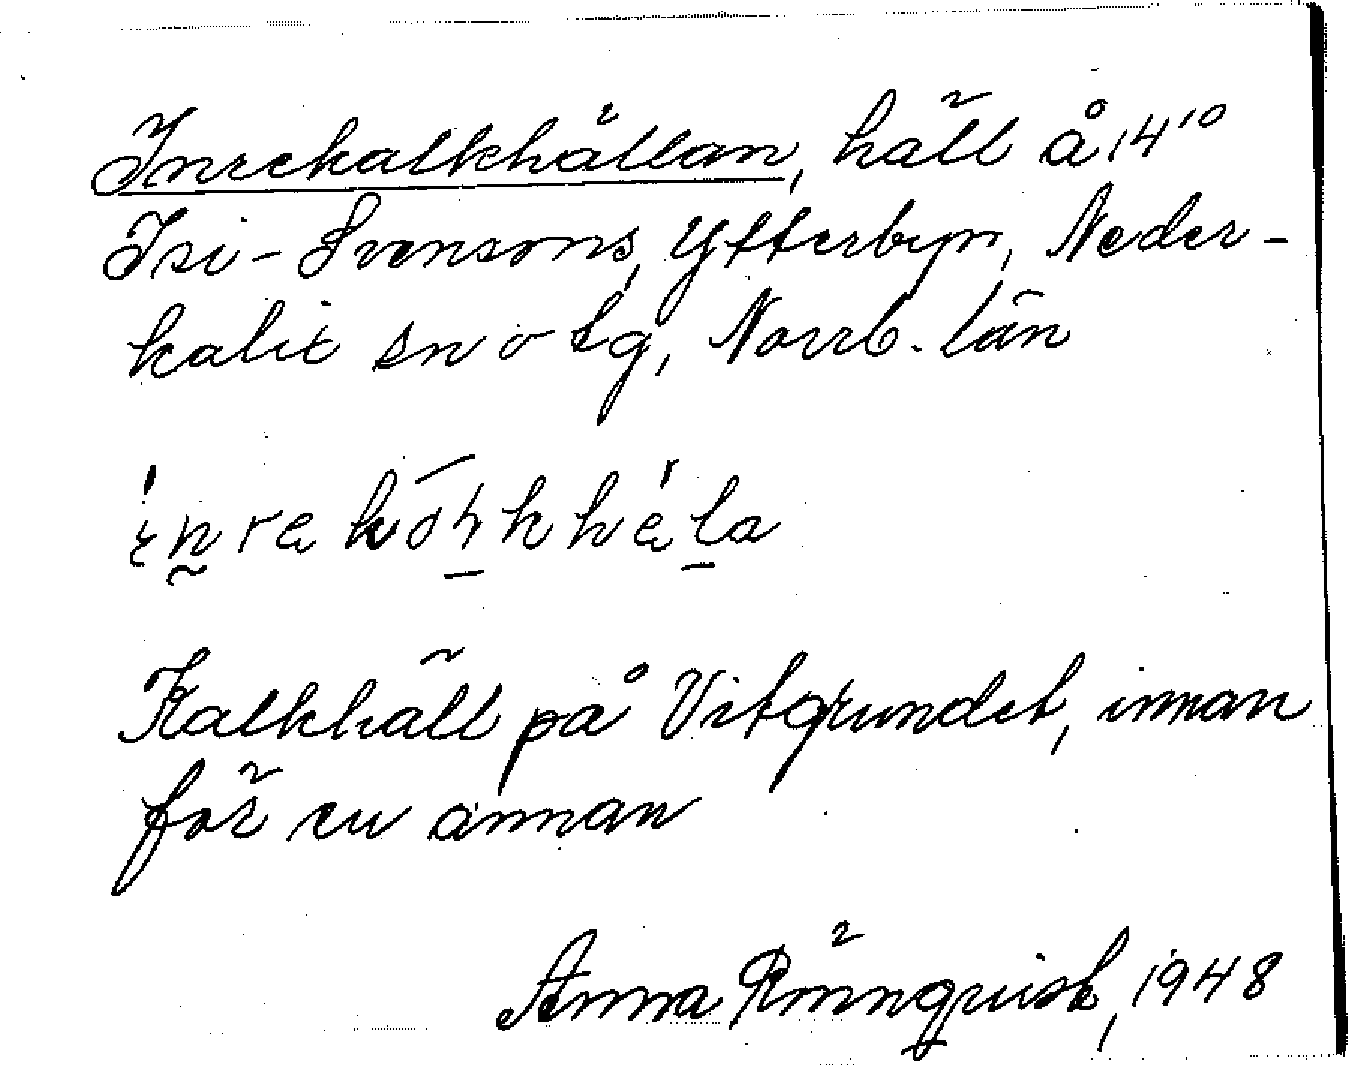 Inrekalkhällan, häll å 14¹⁰
Isi-Svensons, Ytterbyn, Neder-
kalix sn o tg, Norrb. län
Kalkhäll på Vitgrundet, innan
för en annan
Anna Rönnqvist, 1948